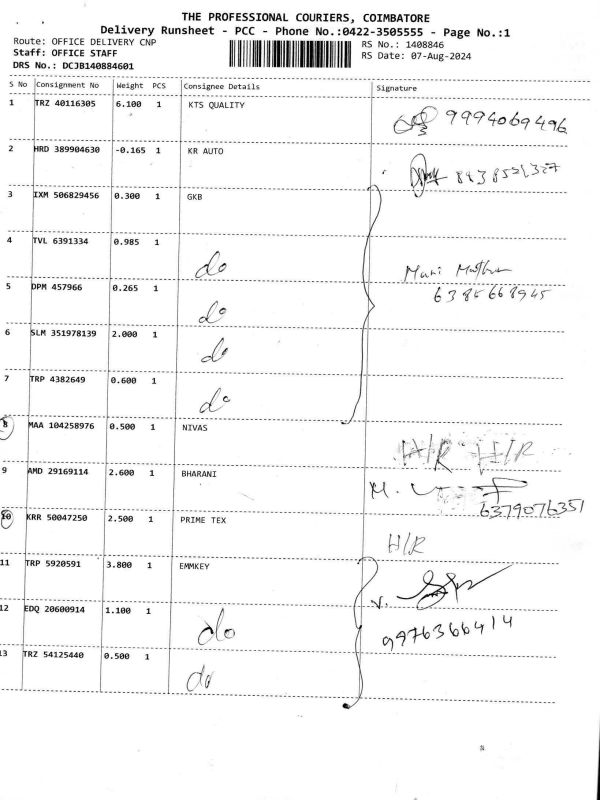 THE PROFESSIONAL COURIERS, COIMBATORE
Delivery Runsheet - PCC - Phone No.:0422-3505555 - Page No.:1
Route: OFFICE DELIVERY CNP
RS No.: 1408846
Staff: OFFICE STAFF
RS Date: 07-Aug-2024
DRS No.: DCJB140884601
S No Consignment No Weight PCS Consignee Details Signature
1 TRZ 40116305 6.100 1 KTS QUALITY
9994069496
2 HRD 389904630 -0.165 1 KR AUTO
8838551327
3 IXM 506829456 0.300 1 GKB
4 TVL 6391334 0.985 1 do
Mari
6385668945
5 DPM 457966 0.265 1 do
6 SLM 351978139 2.000 1 do
7 TRP 4382649 0.600 1 do
8 MAA 104258976 0.500 1 NIVAS
H/R H/R
9 AMD 29169114 2.600 1 BHARANI
M.
6379076351
10 KRR 50047250 2.500 1 PRIME TEX
H/R
11 TRP 5920591 3.800 1 EMMKEY
V.
12 EDQ 20600914 1.100 1 do
9976366414
13 TRZ 54125440 0.500 1 do